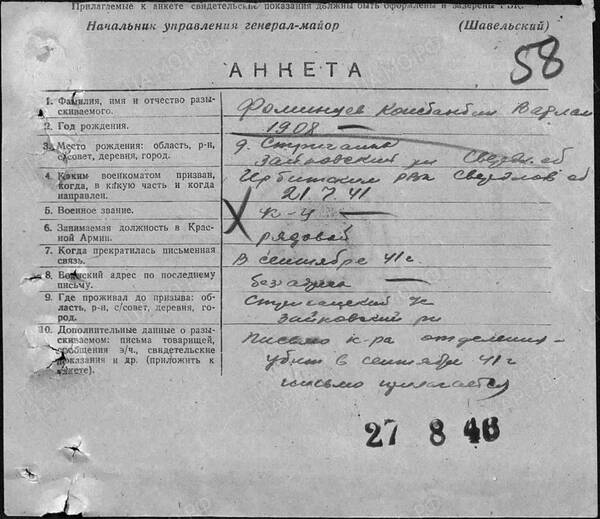 Прилагаемые к анкете свидетельские показания должны быть оформлены и заверены РВК.
Начальник управления генерал-майор (Шавельский)
58
АНКЕТА
1. Фамилия, имя и отчество разыскиваемого.
Фоминцев Константин Варлам
2. Год рождения.
1908 —
3. Место рождения: область, р-н, с/совет, деревня, город.
д. Стриганка
Зайковский рн Свердл об
4. Каким военкоматом призван, когда, в какую часть и когда направлен.
Ирбитским рвк Свердлов об
21.7.41
5. Военное звание.
к-ц —
6. Занимаемая должность в Красной Армии.
рядовой
7. Когда прекратилась письменная связь.
В сентябре 41 г.
8. Воинский адрес по последнему письму.
без адреса —
9. Где проживал до призыва: область, р-н, с/совет, деревня, город.
Зайковский рн
10. Дополнительные данные о разыскиваемом: письма товарищей, сообщения в/ч., свидетельские показания и др. (приложить к анкете).
Письмо к-ра отделения -
убит в сентябре 41 г
письмо прилагается
27 8 46